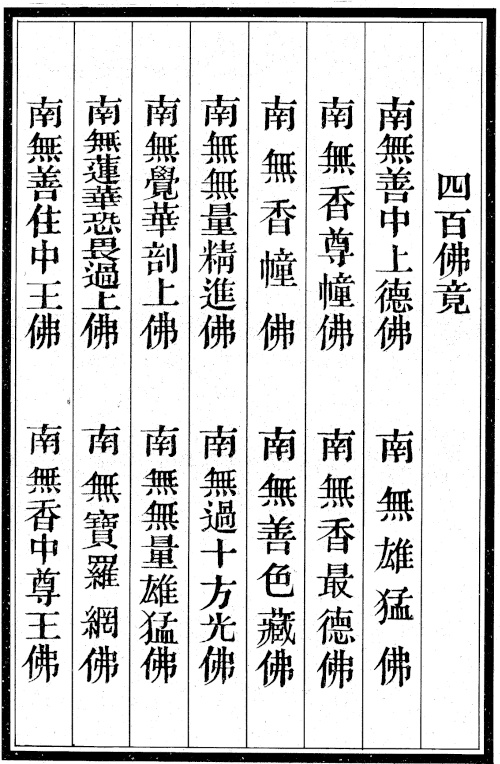 四百佛竟
南無善中上德佛
南無雄猛佛
南無香尊幢佛
南無香最德佛
南無香幢佛
南無善色藏佛
南無無量精進佛
南無過十方光佛
南無覺華剖上佛
南無無量雄猛佛
南無蓮華恐畏過上佛
南無寶羅網佛
南無善住中王佛
南無香中尊王佛